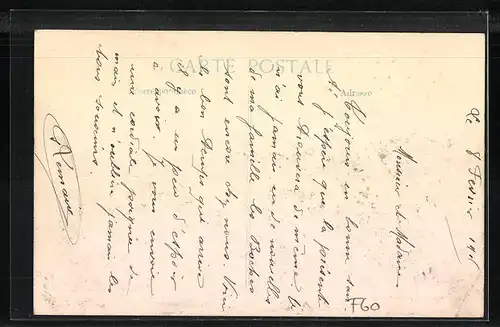 CARTE POSTALE
Correspondance
Adresse
Le 8 Fevrier 191
Monsieur et Madame
Toujours en bonne san-
té j'espère que la présente
vous trouvera de même. Je
n'ai jamais eu de nouvelles
de ma famille les Boches
sont encore chez nous. Voici
le bon temps qui arrive
il y a un peu d'espoir
à avoir je vous envoie
une cordiale poignée de
main et n'oublie jamais les
bons souvenirs.
F60